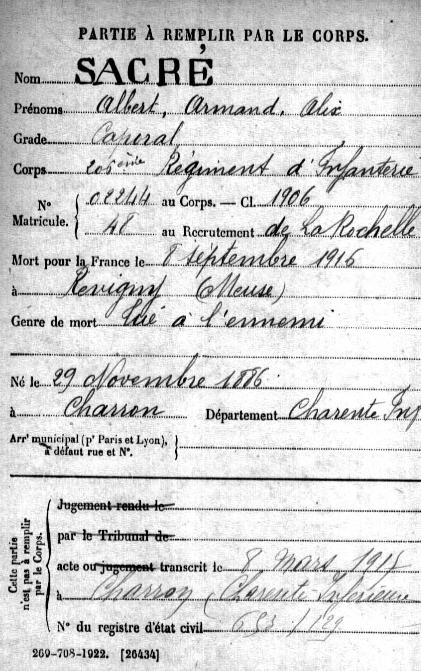 PARTIE À REMPLIR PAR LE CORPS.
Nom SACRÉ
Prénoms Albert, Armand, Alix
Grade Caporal
Corps 206ème Régiment d'Infanterie
N° Matricule. { 02244 au Corps. — Cl. 1906
48 au Recrutement de La Rochelle
Mort pour la France le 8 septembre 1915
à Revigny (Meuse)
Genre de mort Tué à l'ennemi
Né le 29 Novembre 1886
à Charron Département Charente Inf
Arrt municipal (pr Paris et Lyon), à défaut rue et N°. }
Cette partie n'est pas à remplir par le Corps.
Jugement rendu le
par le Tribunal de
acte ou jugement transcrit le 8 mars 1915
à Charron (Charente Inférieure
N° du registre d'état civil
269-708-1922. [26434]